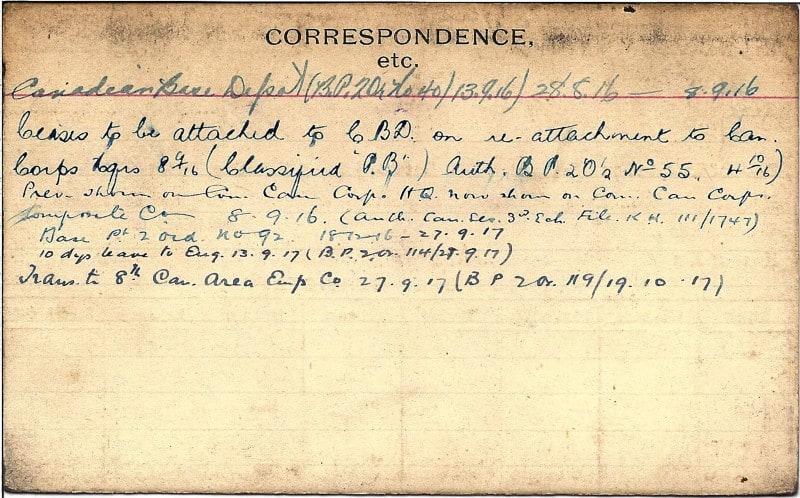 CORRESPONDENCE,
etc.
Canadian Base Depot (B.P.2Or. No 40/13.9.16) 28.8.16 — 8.9.16
Ceases to be attached to C.B.D. on re-attachment to Can.
Corps Hqrs 8/9/16 (Classified "P.B") Auth. B.P.2O's No 55. 4/10/16)
Prev. shown on Com. Can. Corps. H.Q. now shown on Com. Can Corps.
Composite Co 8.9.16. (Auth. Can. Sec. 3rd Ech. File. K.H. 111/1747)
Base Pt 2 ord. No 92. 18/12/16 — 27.9.17
10 dys leave to Eng. 13.9.17 (B.P.2 Or. 114/28.9.17)
Trans. to 8th Can. Area Emp Co. 27.9.17 (B P 2 Or. 119/19.10.17)